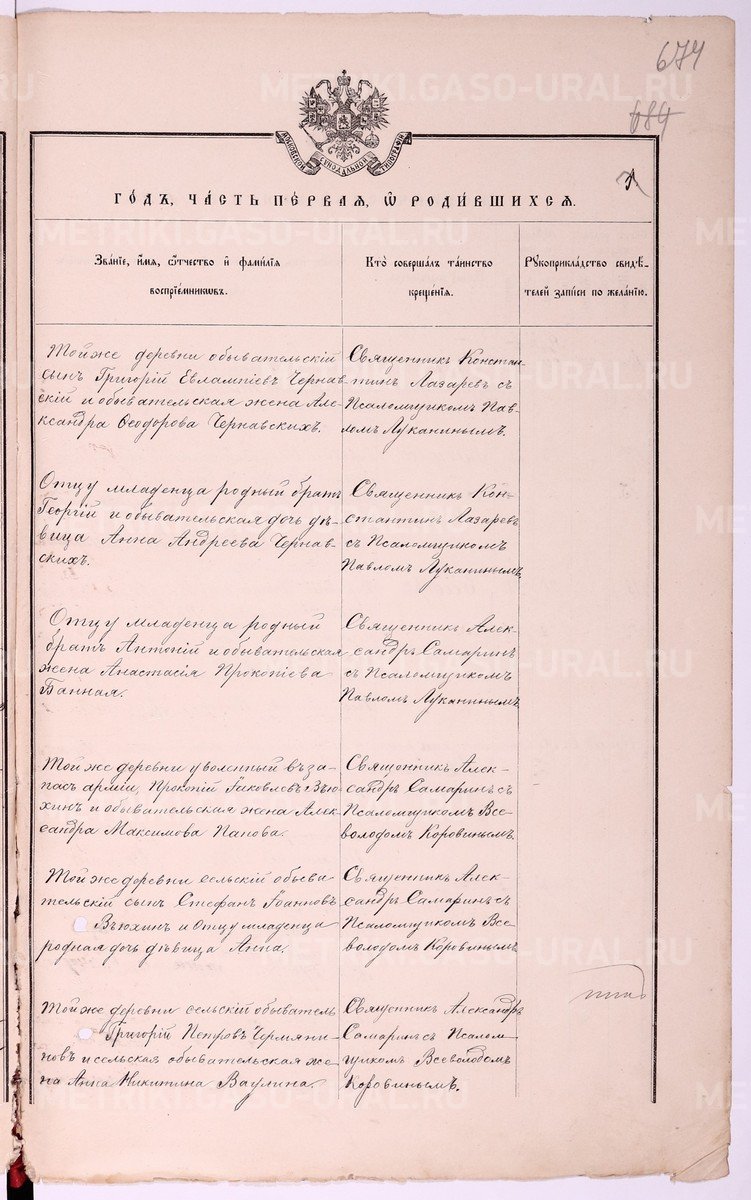 674
684
МОСКОВСКОЙ СѴНОДАЛЬНОЙ ТИПОГРАФІИ
ГОДЪ, ЧАСТЬ ПЕРВАЯ, Ѿ РОДИВШИХСЯ.
Званіе, имя, ѻтчество и фамилія
воспріемникѡвъ.
Кто совершалъ таинство
крещенія.
Рукоприкладство свидѣ-
телей записи по желанію.
Той же деревни обывательскій
сынъ Григорій Евлампіевъ Чернав-
скій и обывательская жена Але-
ксандра Ѳеодорова Чернавскихъ.
Священникъ Констан-
тинъ Лазаревъ съ
Псаломщикомъ Пав-
ломъ Луканинымъ.
Отцу младенца родный братъ
Георгій и обывательская дочь дѣ-
вица Анна Андреева Чернав-
скихъ.
Священникъ Кон-
стантинъ Лазаревъ
съ Псаломщикомъ
Павломъ Луканинымъ.
Отцу младенца родный
братъ Антоній и обывательская
жена Анастасія Прокопіева
Банная.
Священникъ Алек-
сандръ Самаринъ
съ Псаломщикомъ
Павломъ Луканинымъ
Той же деревни уволенный въ за-
пасъ арміи, Прокопій Іаковлевъ Вью-
хинъ и обывательская жена Алек-
сандра Максимова Панова.
Священникъ Алек-
сандръ Самаринъ съ
Псаломщикомъ Все-
володомъ Коровинымъ.
Той же деревни сельскій обыва-
тельскій сынъ Стефанъ Іоанновъ
Вьюхинъ и Отцу младенца
родная дочь дѣвица Анна.
Священникъ Алек-
сандръ Самаринъ съ
Псаломщикомъ Все-
володомъ Коровинымъ
Той же деревни сельскій обыватель
Григорій Петровъ Чермяни-
новъ и сельская обывательская же-
на Анна Никитина Ваулина.
Священникъ Александръ
Самаринъ съ Псалом-
щикомъ Всеволодомъ
Коровинымъ.
METRIKI.GASO-URAL.RU